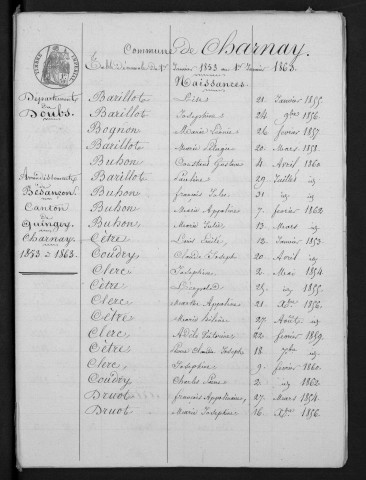 Commune de Charnay.
Table décennale du 1er Janvier 1853 au 1er Janvier 1863.
Naissances.
Département
du
Doubs.
Arrondissement
de
Besançon
Canton
de
Quingey
Charnay
1853 à 1863.
Barillot Lise 21 Janvier 1855.
Barillot Joséphine 24 9bre 1856.
Bognon Marie 26 février 1857.
Barillot Marie 20 Mars 1851.
Buhon Constant Gustave 4 Avril 1860
Barillot Pauline 29 Juillet id
Buhon François Jules 31 id id
Buhon Marie Appoline 7 février 1862
Buhon Marie 13 Mars id
Cêtre Louis Emile 12 Janvier 1853.
Coudry Claude Joseph 20 Avril id
Clerc Joséphine 2 Mai 1854.
Cêtre Léopold 25 id 1855.
Clerc Marthe Appoline 21 Xbre 1856.
Cêtre Marie 27 Août id
Clerc Adèle Victorine 22 février 1859.
Cêtre Claude Joseph 18 7bre id
Clerc Joséphine 9 février 1860
Coudry Charles 2 id 1862
Druot François Appolinaire 27 Mars 1854.
Druot Marie Joséphine 16 Xbre 1856.